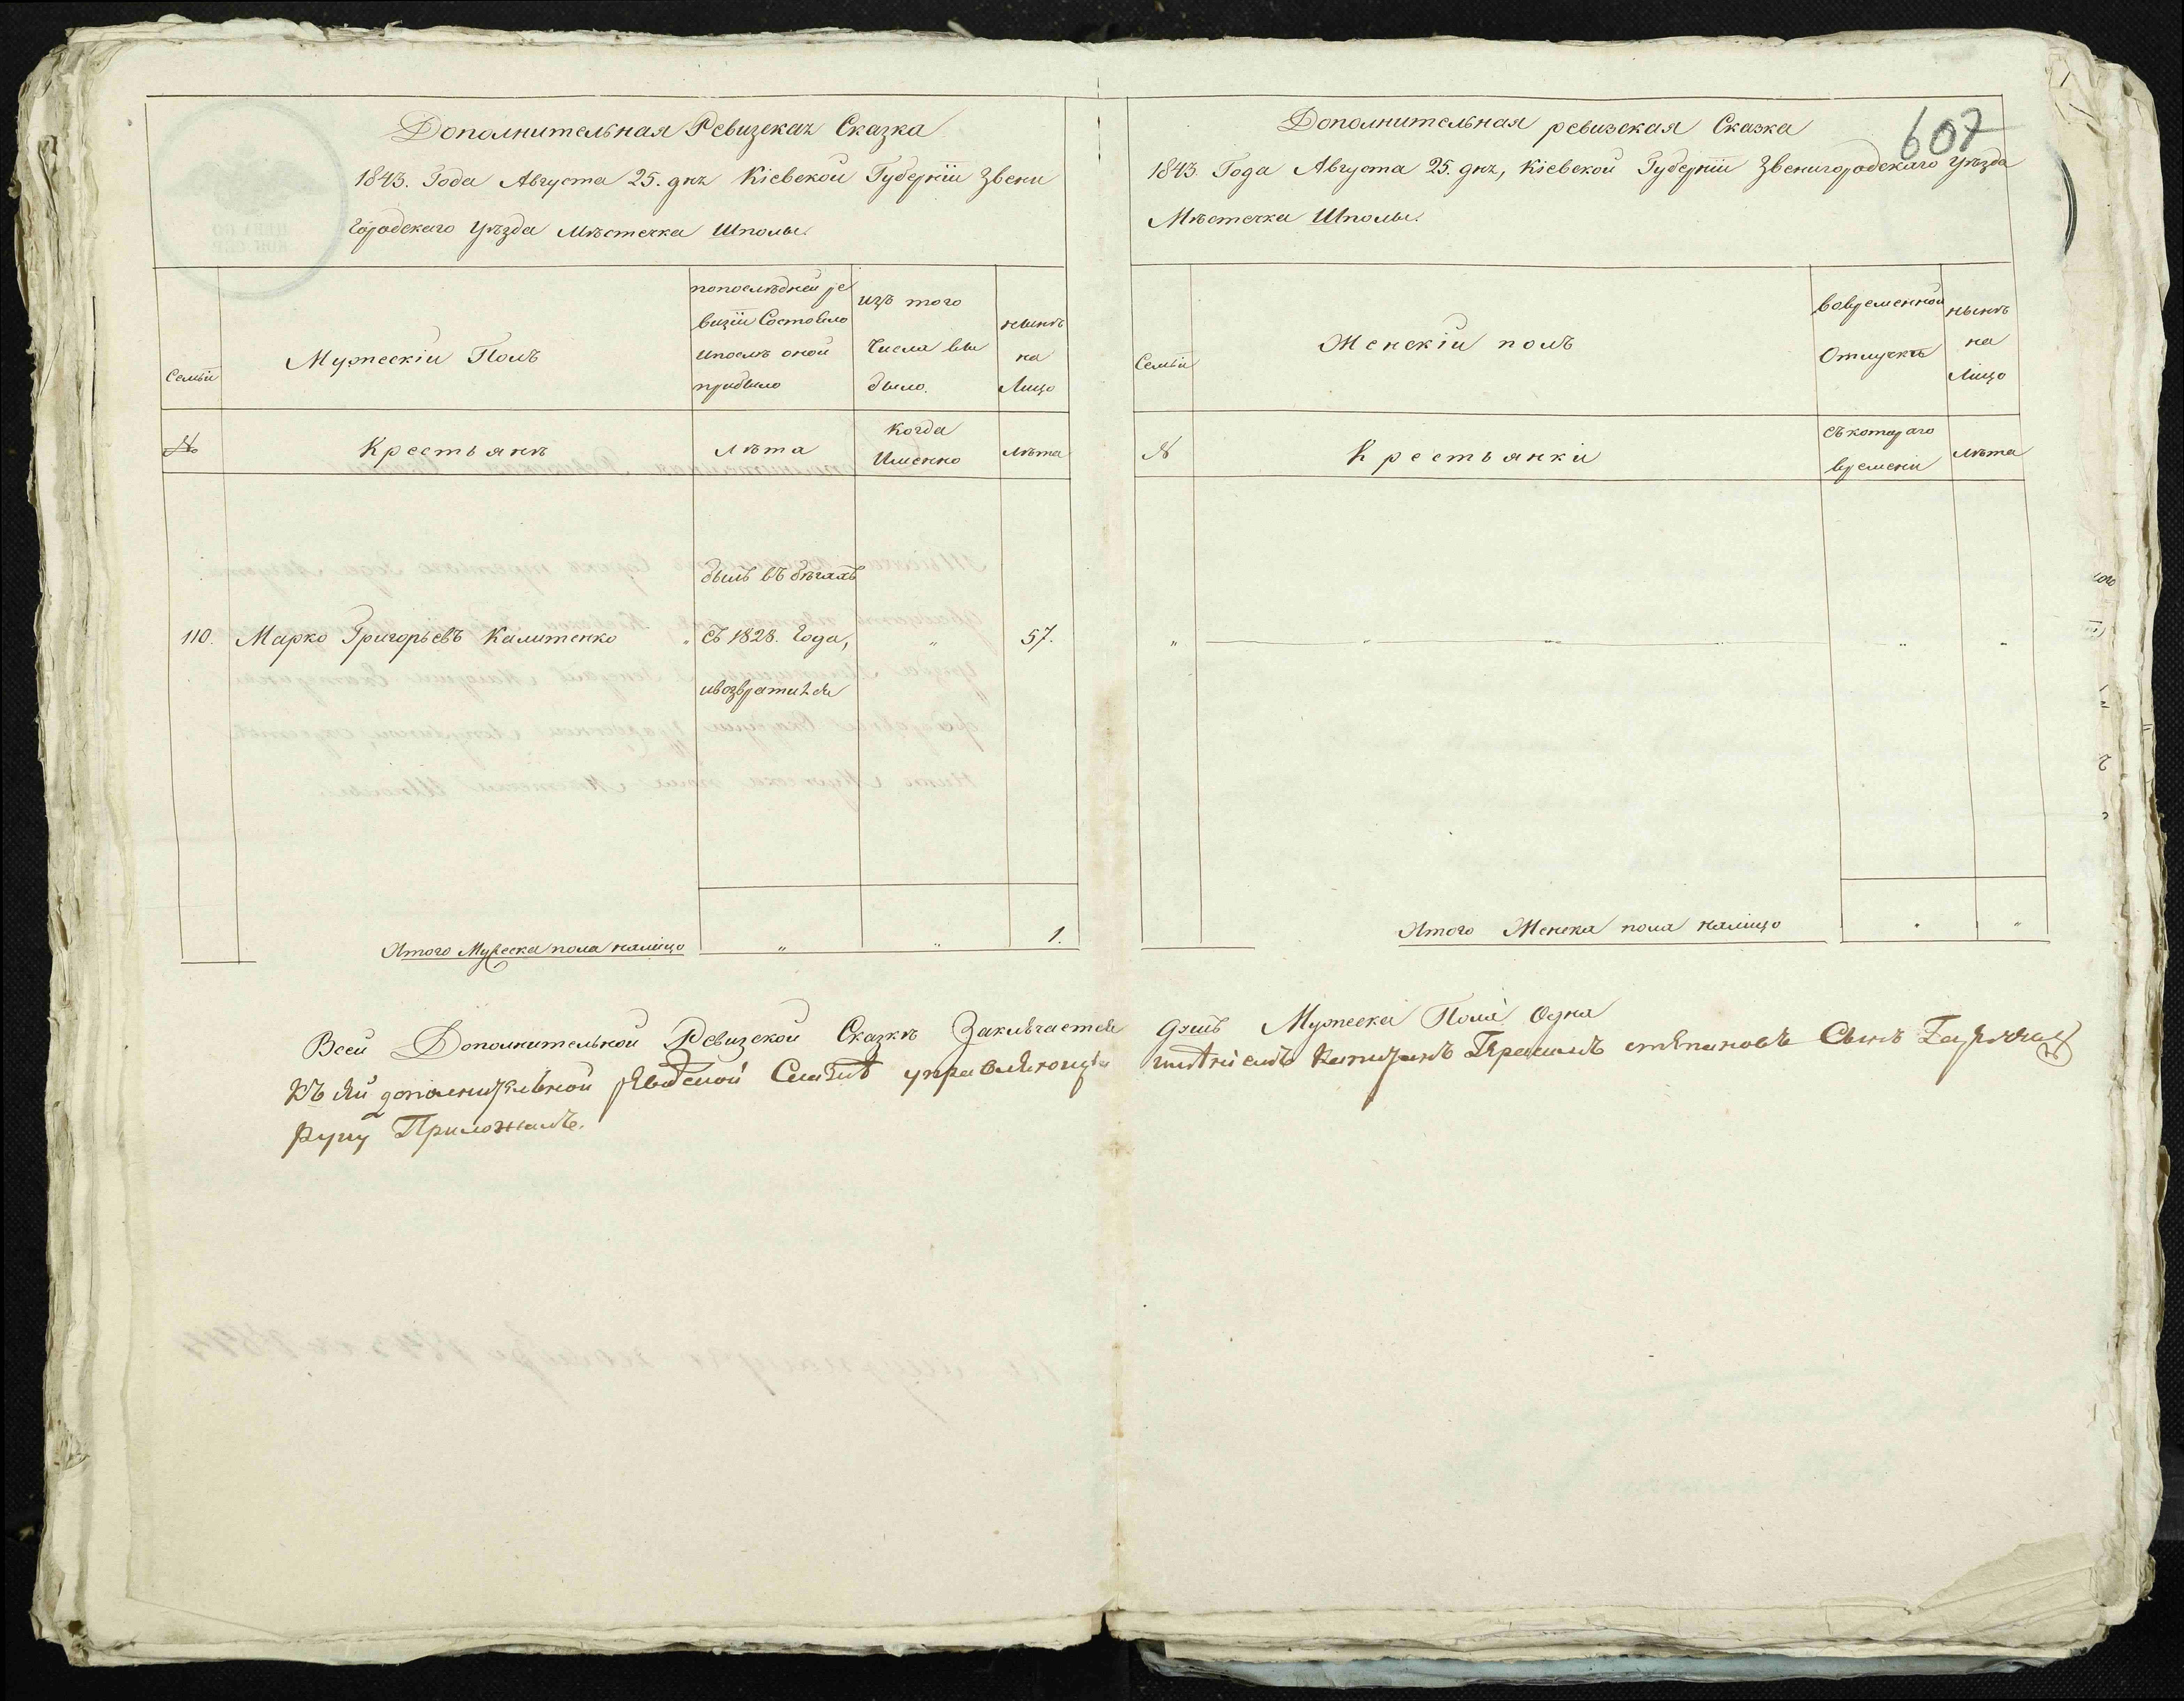 Дополнительная Ревизская Сказка
1843. Года Августа 25. дня Кіевской Губерніи Звени
городскаго уѣзда Мѣстечка Шполы.
Семьи
Мужескій Полъ
попослѣдней ре
визіи Состояло
ипослѣ оной
прибыло
изъ того
Числа вы
было.
нынѣ
на
Лицо
№
Крестьянѣ
Лѣта
Когда
Именно
лѣта
110.
Марко Григорьевъ Калитенко
былъ въ бѣгахъ
съ 1828. Года,
ивозвратился
"
57.
Итого Мужеска пола налицо
"
"
1.
607
Дополнительная ревизская Сказка
1843. Года Августа 25. дня, Кіевской Губерніи Звенигородскаго уѣзда
Мѣстечка Шполы.
Семьи
Женскій полъ
вовременной
Отлучкѣ
нынѣ
на
Лицо
№
Крестьянки
съкотораго
времени
лѣта
"
"
"
"
"
Итого Женска пола налицо
"
"
Всей Дополнительной Ревизской Сказкѣ Заключается душъ Мужеска Пола Одна
Къ сей дополнительной Сказкѣ управляющій имѣніемъ Капитанъ степановъ Сынъ
руку Приложилъ.